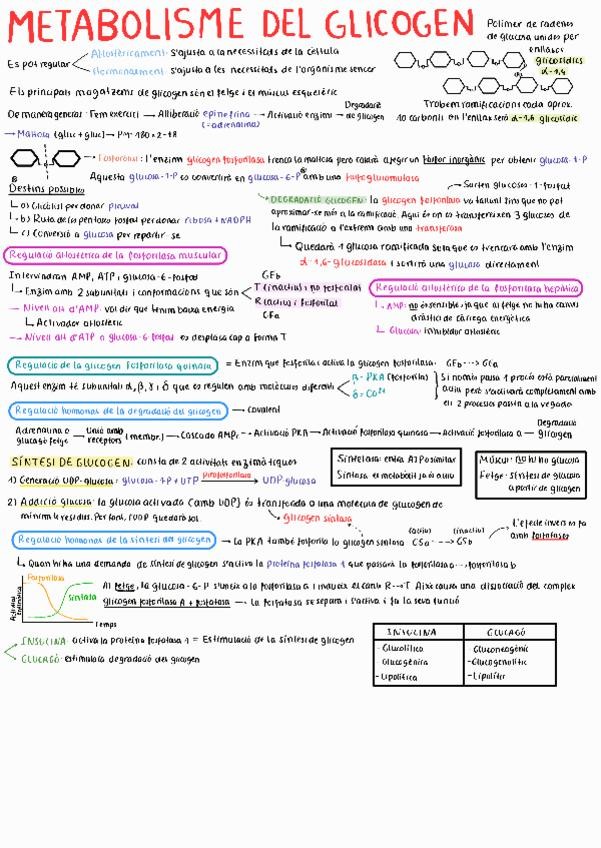 METABOLISME DEL GLICOGEN
Polímer de cadenes de glucosa unides per enllaços glicosídics α-1,4
Es pot regular
Al·lostèricament: s'ajusta a la necessitats de la cèl·lula
Hormonalment: s'ajusta a les necessitats de l'organisme sencer
Els principals magatzems de glicogen són el fetge i el múscul esquelètic
Trobem ramificacions cada aprox. 10 carbonis en l'enllaç serà α-1,6 glicosídic
De manera general: Fem exercici → Alliberació epinefrina (=adrenalina) → Activació enzims → Degradació de glicogen
→ Maltosa (gluc + gluc) → Pm: 180×2-18
→ Fosforolisi: l'enzim glicogen fosforilasa trenca la maltosa però caldrà afegir un fosfor inorgànic per obtenir glucosa-1-P
Aquesta glucosa-1-P es convertirà en glucosa-6-P amb una fosfoglucomutasa
Destins possibles
a) Glicòlisi per donar piruvat
b) Ruta de les pentoses fosfat per donar ribosa + NADPH
c) Conversió a glucosa per repartir-se
→ Surten glucoses-1-fosfat
DEGRADACIÓ GLICOGEN: la glicogen fosforilasa va tallant fins que no pot
aproximar-se més a la ramificació. Aquí és on es transfereixen 3 glucoses de
la ramificació a l'extrem amb una transferasa
Quedarà 1 glucosa ramificada sola que es trencarà amb l'enzim
α-1,6-glucosidasa i sortirà una glucosa directament
Regulació al·lostèrica de la fosforilasa muscular
Intervindran AMP, ATP i glucosa-6-fosfat
Enzim amb 2 subunitats i conformacions que són
GFb
T (inactiva) i no fosfatat
R (activa) i fosfatat
GFa
— Nivell alt d'AMP: vol dir que tenim baixa energia
Activador al·lostèric
— Nivell alt d'ATP o glucosa-6-fosfat es desplaça cap a forma T
Regulació al·lostèrica de la fosforilasa hepàtica
AMP: no és sensible ja que al fetge no hi ha canvis
dràstics de càrrega energètica
Glucosa: inhibidor al·lostèric
Regulació de la glicogen fosforilasa quinasa = Enzim que fosforila i activa la glicogen fosforilasa: GFb → GFa
Aquest enzim té subunitats α, β, γ i δ que es regulen amb molècules diferents
β = PKA (fosforila)
δ = Ca2+
Si només passa 1 procés està parcialment
actiu però s'activarà completament amb
els 2 processos passin a la vegada
Regulació hormonas de la degradació del glicogen → Covalent
Adrenalina o glucagó fetge → Unió amb receptors (membr.) → Cascada AMPc → Activació PKA → Activació fosforilasa quinasa → Activació fosforilasa a → Degradació glicogen
SÍNTESI DE GLUCOGEN: consta de 2 activitats enzimàtiques
1) Generació UDP-glucosa: glucosa-1P + UTP → pirofosforilasa → UDP-glucosa
Sintetasa: enta ATP o similar
Sintasa: el metabòlit ja és actiu
Múscul: no hi ha glucosa
Fetge: síntesi de glucosa
a partir de glicogen
2) Addició glucosa: la glucosa activada (amb UDP) és transferida a una molècula de glucogen de
mínim 4 residus. Per tant, l'UDP quedarà sol.
→ glicogen sintasa
Regulació hormonas de la síntesi del glicogen → La PKA també fosforila la glicogen sintasa
(activa) GSa → (inactiva) GSb
L'efecte invers es fa amb fosfatases
Quan hi ha una demanda de síntesi de glicogen s'activa la proteïna fosfatasa 1 que passarà la fosforilasa a → fosforilasa b
Fosforilasa
Sintasa
Activitat enzimàtica
Temps
Al fetge, la glucosa-6-P s'uneix a la fosforilasa a i indueix el canvi R → T. Això causa una dissociació del complex
glicogen fosforilasa A + fosfatasa → la fosfatasa se separa i s'activa i fa la seva funció
INSULINA: activa la proteïna fosfatasa 1 = Estimulació de la síntesi de glicogen
GLUCAGÓ: estimularà degradació del glicogen
INSULINA GLUCAGÓ
- Glucolítica Gluconeogènic
Glucogènica - Glucogenolític
- Lipolítica - Lipolític